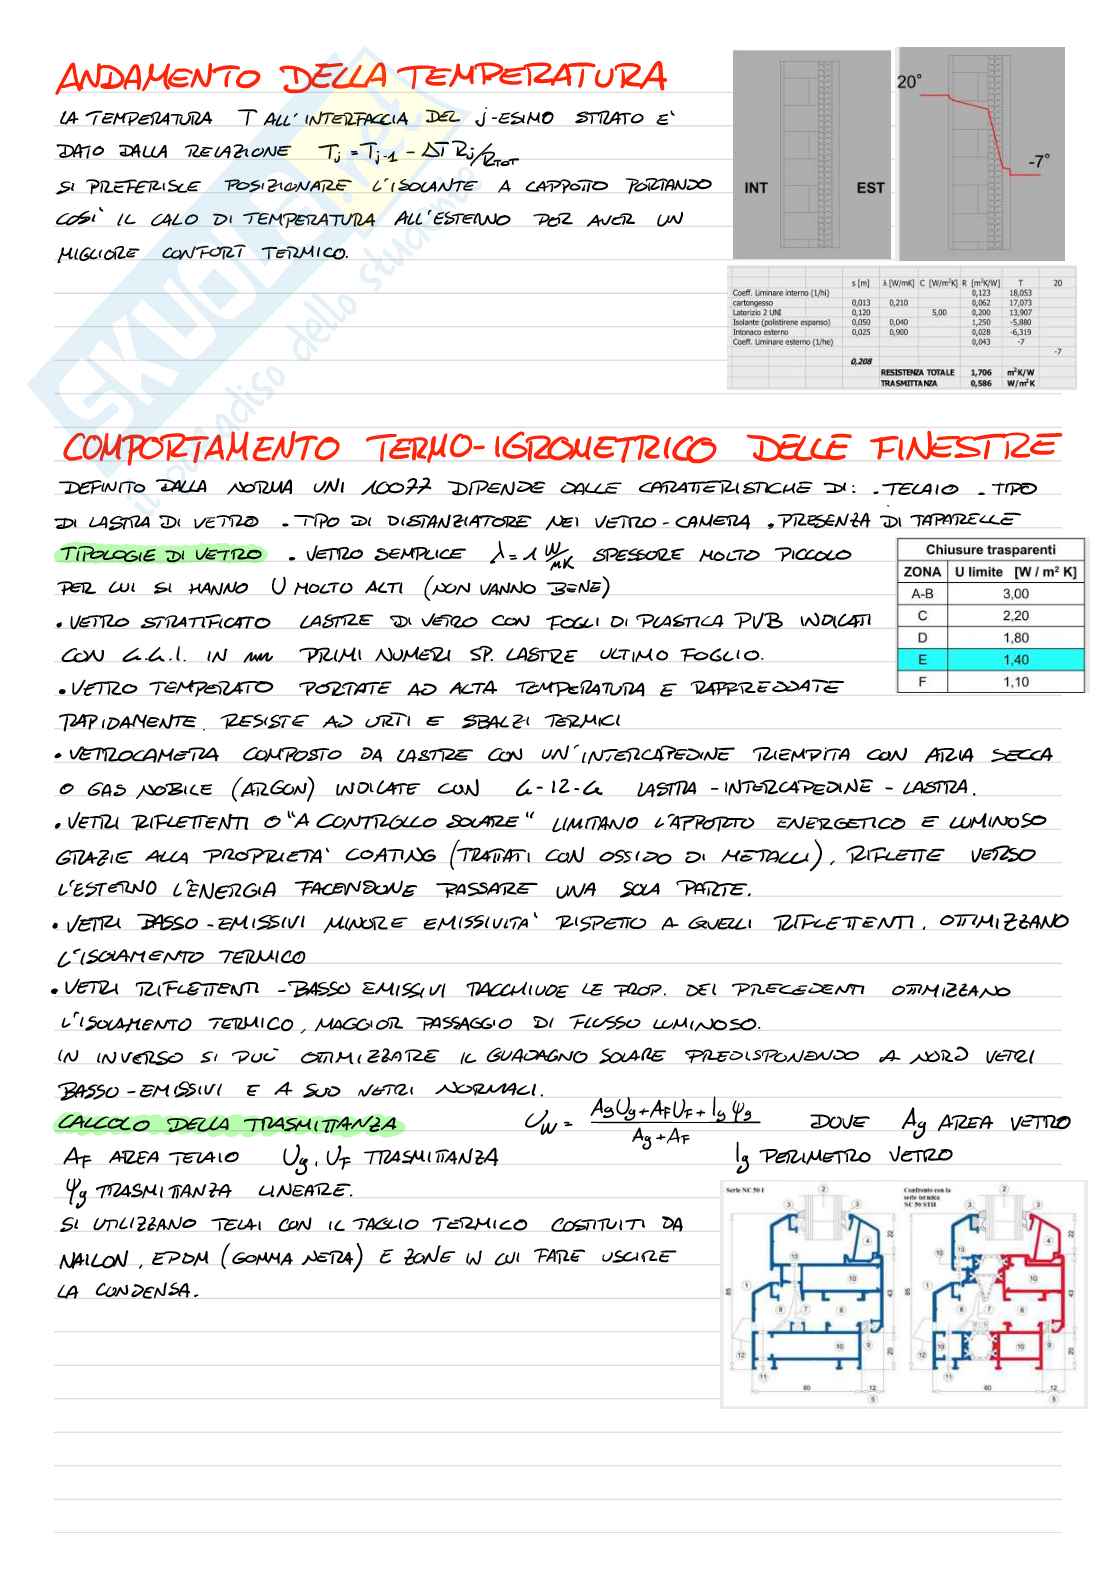 ANDAMENTO DELLA TEMPERATURA
LA TEMPERATURA T ALL'INTERFACCIA DEL j-ESIMO STRATO E'
DATO DALLA RELAZIONE Tj = Tj-1 - ΔT Rj/RTOT
SI PREFERISCE POSIZIONARE L'ISOLANTE A CAPPOTTO PORTANDO
COSI' IL CALO DI TEMPERATURA ALL'ESTERNO PER AVER UN
MIGLIORE CONFORT TERMICO.
INT EST 20° -7°
s [m] λ [W/mK] C [W/m²K] R [m²K/W] T 20
Coeff. Liminare interno (1/hi) 0,123 18,053
cartongesso 0,013 0,210 0,062 17,073
Laterizio 2 UNI 0,120 5,00 0,200 13,907
Isolante (polistirene espanso) 0,050 0,040 1,250 -5,880
Intonaco esterno 0,025 0,900 0,028 -6,319
Coeff. Liminare esterno (1/he) 0,043 -7
-7
0,208
RESISTENZA TOTALE 1,706 m²K/W
TRASMITTANZA 0,586 W/m²K
COMPORTAMENTO TERMO-IGROMETRICO DELLE FINESTRE
DEFINITO DALLA NORMA UNI 10077 DIPENDE DALLE CARATTERISTICHE DI: . TELAIO . TIPO
DI LASTRA DI VETRO . TIPO DI DISTANZIATORE NEI VETRO-CAMERA . PRESENZA DI TAPARELLE
TIPOLOGIE DI VETRO . VETRO SEMPLICE λ = 1 W/mK SPESSORE MOLTO PICCOLO
PER CUI SI HANNO U MOLTO ALTI (NON VANNO BENE)
. VETRO STRATIFICATO LASTRE DI VETRO CON FOGLI DI PLASTICA PVB INDICATI
CON 4.4.1. IN mm PRIMI NUMERI SP. LASTRE ULTIMO FOGLIO.
. VETRO TEMPERATO PORTATE AD ALTA TEMPERATURA E RAFFREDDATE
RAPIDAMENTE. RESISTE AD URTI E SBALZI TERMICI
Chiusure trasparenti
ZONA U limite [W / m² K]
A-B 3,00
C 2,20
D 1,80
E 1,40
F 1,10
. VETROCAMERA COMPOSTO DA LASTRE CON UN'INTERCAPEDINE RIEMPITA CON ARIA SECCA
O GAS NOBILE (ARGON) INDICATE CON 4-12-4 LASTRA-INTERCAPEDINE-LASTRA.
. VETRI RIFLETTENTI O "A CONTROLLO SOLARE" LIMITANO L'APPORTO ENERGETICO E LUMINOSO
GRAZIE ALLA PROPRIETA' COATING (TRATTATI CON OSSIDO DI METALLI), RIFLETTE VERSO
L'ESTERNO L'ENERGIA FACENDONE PASSARE UNA SOLA PARTE.
. VETRI BASSO-EMISSIVI MINORE EMISSIVITA' RISPETTO A QUELLI RIFLETTENTI. OTTIMIZZANO
L'ISOLAMENTO TERMICO
. VETRI RIFLETTENTI - BASSO EMISSIVI RACCHIUDE LE PROP. DEI PRECEDENTI OTTIMIZZANO
L'ISOLAMENTO TERMICO, MAGGIOR PASSAGGIO DI FLUSSO LUMINOSO.
IN INVERSO SI PUÒ OTTIMIZZARE IL GUADAGNO SOLARE PREDISPONENDO A NORD VETRI
BASSO-EMISSIVI E A SUD VETRI NORMALI.
CALCOLO DELLA TRASMITTANZA UW = AgUg + AFUF + lg ψg / Ag + AF DOVE Ag AREA VETRO
AF AREA TELAIO Ug, UF TRASMITTANZA lg PERIMETRO VETRO
ψg TRASMITTANZA LINEARE.
SI UTILIZZANO TELAI CON IL TAGLIO TERMICO COSTITUITI DA
NAILON, EPDM (GOMMA NERA) E ZONE IN CUI FARE USCIRE
LA CONDENSA.
Serie NC 50 I
Confronto con la
serie tecnica
NC 50 STH
85 22 43 20 60 12
85 22 43 20 60 12
SKUOLA.net